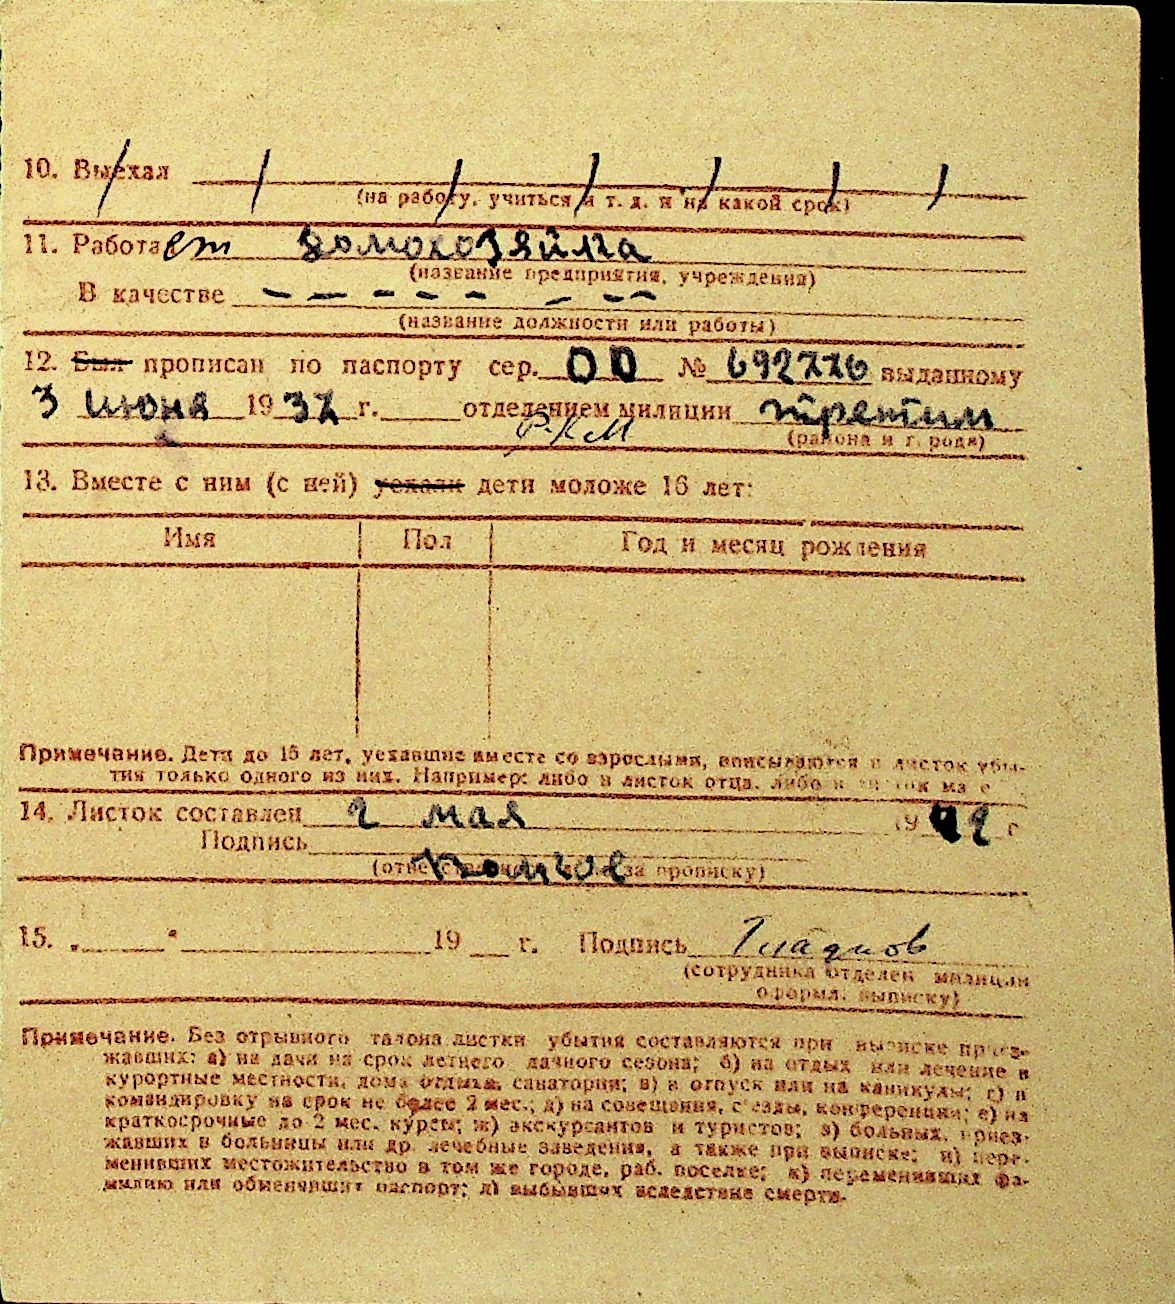 10. Выехал
(на работу, учиться и т. д. и на какой срок)
11. Работает домохозяйка
(название предприятия, учреждения)
В качестве — — — — — — — —
(название должности или работы)
12. Был прописан по паспорту сер. ОО № 692776 выданному
3 июня 1937 г. отделением милиции третим
Р.К.М
(района и города)
13. Вместе с ним (с ней) уехали дети моложе 16 лет:
Имя Пол Год и месяц рождения
Примечание. Дети до 15 лет, уехавшие вместе со взрослыми, вписываются в листок убы-
тия только одного из них. Например: либо в листок отца, либо в листок
14. Листок составлен 2 мая 19 г
Подпись
(ответственного за прописку)
15. „ “ 19 г. Подпись Гладков
(сотрудника отделен милиции
оформл. выписку)
Примечание. Без отрывного талона листки убытия составляются при выписке приез-
жавших: а) на дачи на срок летнего дачного сезона; б) на отдых или лечение в
курортные местности, дома отдыха, санатории; в) в отпуск или на каникулы; г) в
командировку на срок не более 2 мес.; д) на совещания, съезды, конференции; е) на
краткосрочные до 2 мес. курсы; ж) экскурсантов и туристов; з) больных, приез-
жавших в больницы или др. лечебные заведения, а также при выписке; и) пере-
менивших местожительство в том же городе, раб. поселке; к) переменивших фа-
милию или обменявших паспорт; л) выбывших вследствие смерти.